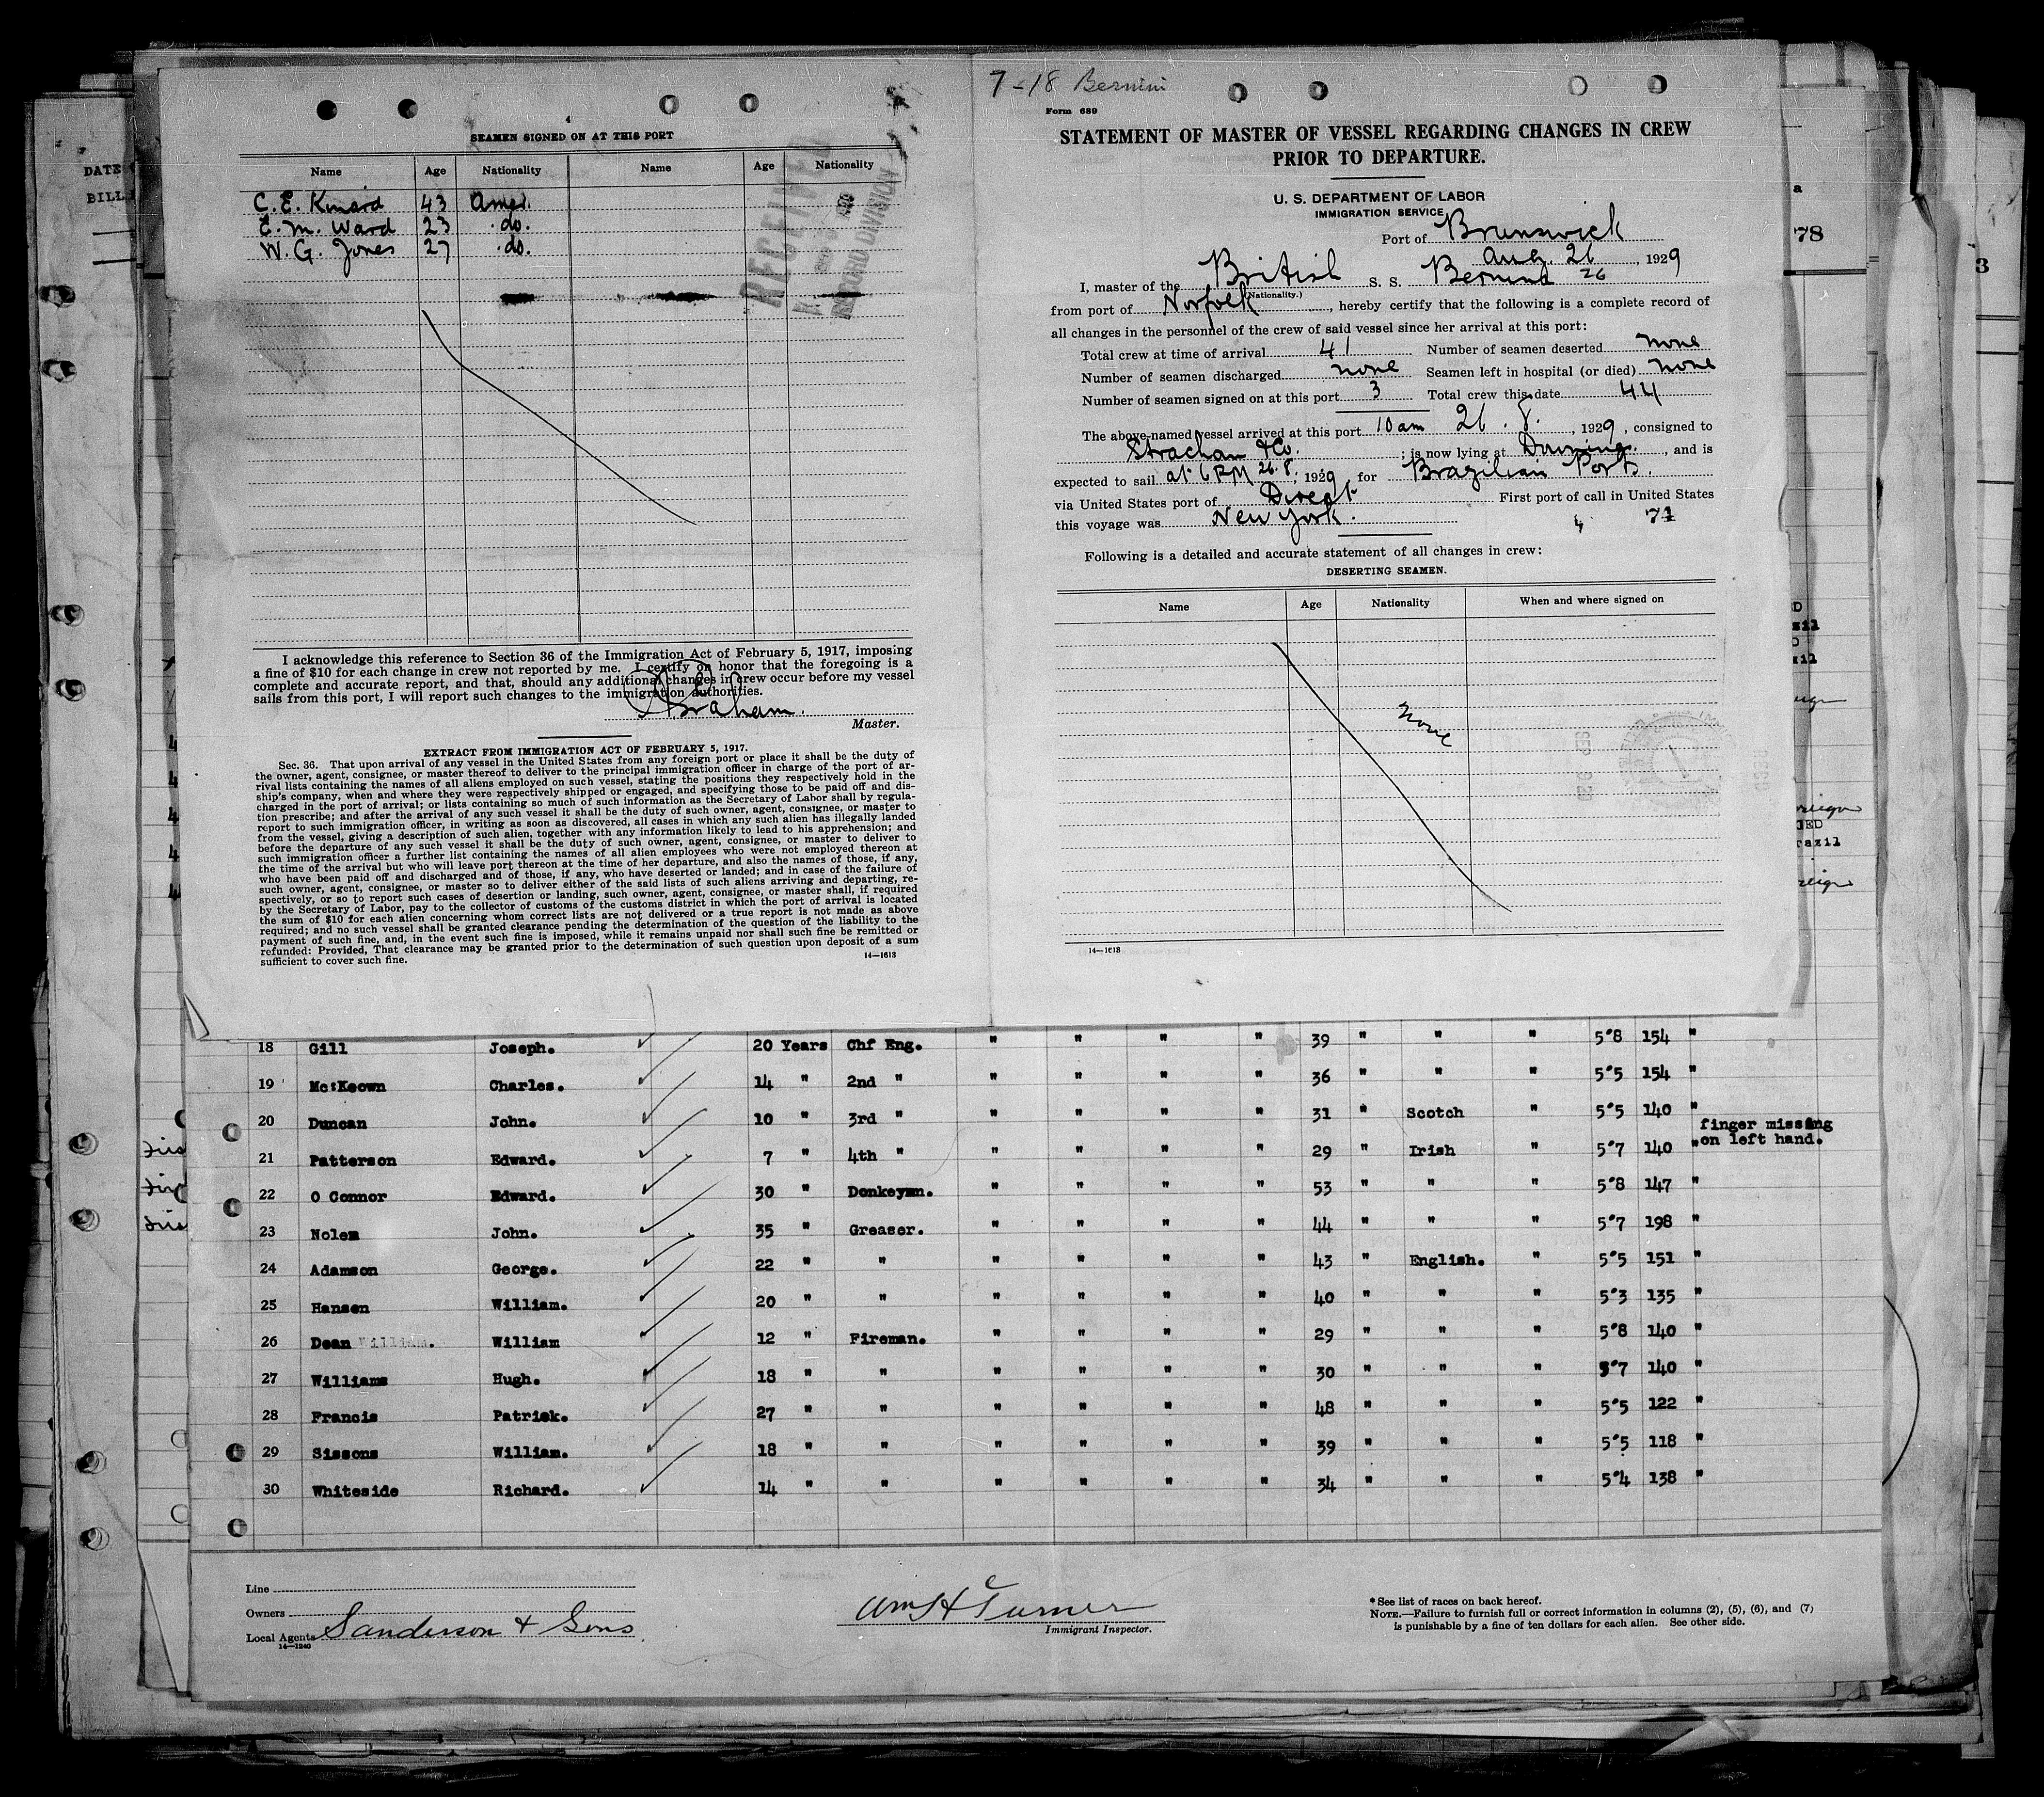 SEAMEN SIGNED ON AT THIS PORT
Name Age Nationality Name Age Nationality
C. E. Kinard 43 Amer.
E. M. Ward 23 do.
W. G. Jones 27 do.
RECEIVED
RECORD DIVISION
I acknowledge this reference to Section 36 of the Immigration Act of February 5, 1917, imposing
a fine of $10 for each change in crew not reported by me. I certify on honor that the foregoing is a
complete and accurate report, and that, should any additional changes in crew occur before my vessel
sails from this port, I will report such changes to the immigration authorities.
Master.
EXTRACT FROM IMMIGRATION ACT OF FEBRUARY 5, 1917.
Sec. 36. That upon arrival of any vessel in the United States from any foreign port or place it shall be the duty of
the owner, agent, consignee, or master thereof to deliver to the principal immigration officer in charge of the port of ar-
rival lists containing the names of all aliens employed on such vessel, stating the positions they respectively hold in the
ship's company, when and where they were respectively shipped or engaged, and specifying those to be paid off and dis-
charged in the port of arrival; or lists containing so much of such information as the Secretary of Labor shall by regula-
tion prescribe; and after the arrival of any such vessel it shall be the duty of such owner, agent, consignee, or master to
report to such immigration officer, in writing as soon as discovered, all cases in which any such alien has illegally landed
from the vessel, giving a description of such alien, together with any information likely to lead to his apprehension; and
before the departure of any such vessel it shall be the duty of such owner, agent, consignee, or master to deliver to
such immigration officer a further list containing the names of all alien employees who were not employed thereon at
the time of the arrival but who will leave port thereon at the time of her departure, and also the names of those, if any,
who have been paid off and discharged and of those, if any, who have deserted or landed; and in case of the failure of
such owner, agent, consignee, or master so to deliver either of the said lists of such aliens arriving and departing, re-
spectively, or so to report such cases of desertion or landing, such owner, agent, consignee, or master shall, if required
by the Secretary of Labor, pay to the collector of customs of the customs district in which the port of arrival is located
the sum of $10 for each alien concerning whom correct lists are not delivered or a true report is not made as above
required; and no such vessel shall be granted clearance pending the determination of the question of the liability to the
payment of such fine, and, in the event such fine is imposed, while it remains unpaid nor shall such fine be remitted or
refunded: Provided, That clearance may be granted prior to the determination of such question upon deposit of a sum
sufficient to cover such fine.
14—1613
7-18 Bernini
Form 689
STATEMENT OF MASTER OF VESSEL REGARDING CHANGES IN CREW
PRIOR TO DEPARTURE.
U. S. DEPARTMENT OF LABOR
IMMIGRATION SERVICE
Port of Brunswick
Aug. 26, 1929
I, master of the British S. S. Bernini 26
(Nationality.)
from port of Norfolk, hereby certify that the following is a complete record of
all changes in the personnel of the crew of said vessel since her arrival at this port:
Total crew at time of arrival 41 Number of seamen deserted none
Number of seamen discharged none Seamen left in hospital (or died) none
Number of seamen signed on at this port 3 Total crew this date 44
The above-named vessel arrived at this port 10 am 26. 8., 1929, consigned to
Strachan & Co.; is now lying at Downing, and is
expected to sail at 6 PM 26.8., 1929 for Brazilian Ports.
via United States port of Direct First port of call in United States
this voyage was New York. 4 71
Following is a detailed and accurate statement of all changes in crew:
DESERTING SEAMEN.
Name Age Nationality When and where signed on
none
14—1613
18 Gill Joseph. 20 Years Chf Eng. " " " " 39 " " " 5"8 154 "
19 McKeown Charles. 14 " 2nd " " " " " 36 " " " 5"5 154 "
20 Duncan John. 10 " 3rd " " " " " 31 " Scotch " 5"5 140 "
finger missing
21 Patterson Edward. 7 " 4th " " " " " 29 " Irish " 5"7 140 " on left hand.
22 O Connor Edward. 30 " Donkeymn. " " " " 53 " " " 5"8 147 "
23 Nolem John. 35 " Greaser. " " " " 44 " " " 5"7 198 "
24 Adamson George. 22 " " " " " " 43 " English. " 5"5 151 "
25 Hansen William. 20 " " " " " " 40 " " " 5"3 135 "
26 Dean William. William 12 " Fireman. " " " " 29 " " " 5"8 140 "
27 Williams Hugh. 18 " " " " " " 30 " " " 5"7 140 "
28 Francis Patrick. 27 " " " " " " 48 " " " 5"5 122 "
29 Sissons William. 18 " " " " " " 39 " " " 5"5 118 "
30 Whiteside Richard. 14 " " " " " " 34 " " " 5"4 138 "
Line
Owners
Local Agents Sanderson & Sons
14—1240
Wm H Turner
Immigrant Inspector.
* See list of races on back hereof.
NOTE.—Failure to furnish full or correct information in columns (2), (5), (6), and (7)
is punishable by a fine of ten dollars for each alien. See other side.